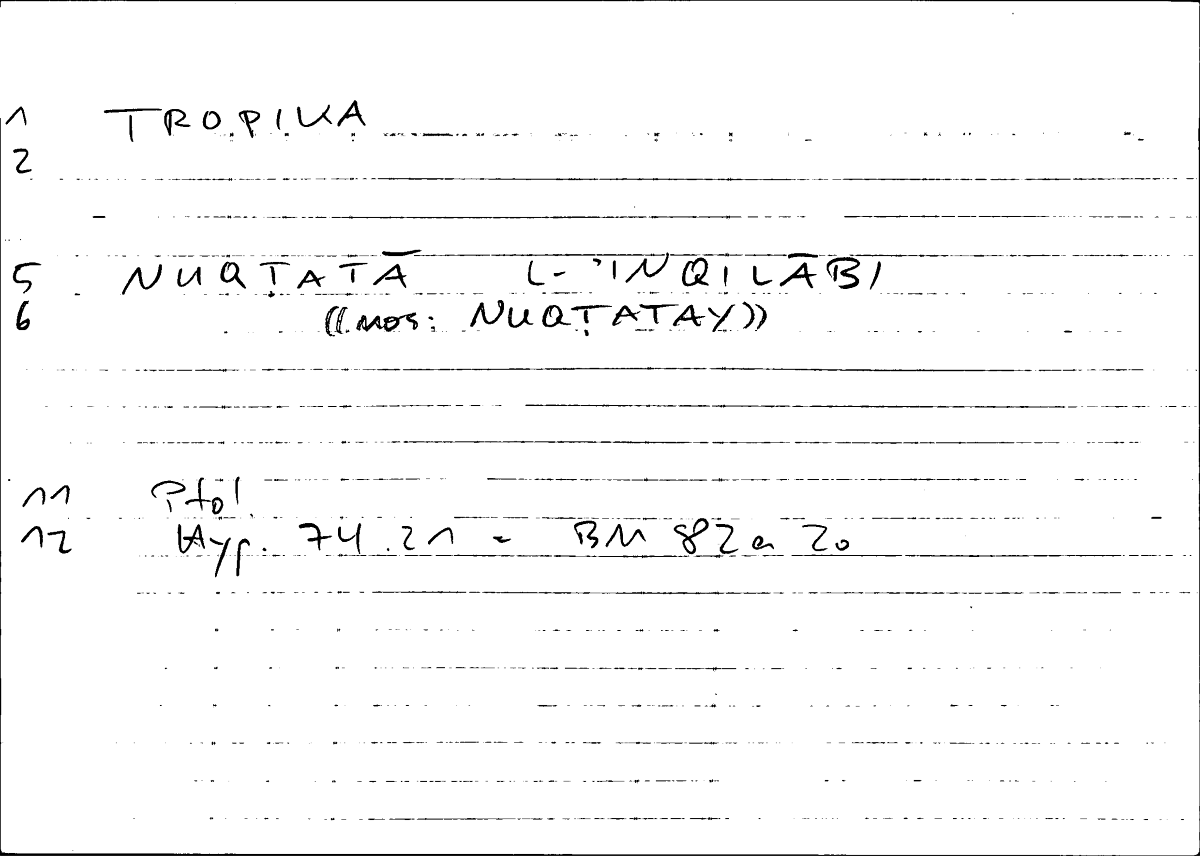 1 TROPIKA
2
5 NUQṬATĀ L-ʾINQILĀBI
6 ((MOS: NUQṬATAY))
11 Ptol.
12 Hyp. 74.21 = BM 82a 20